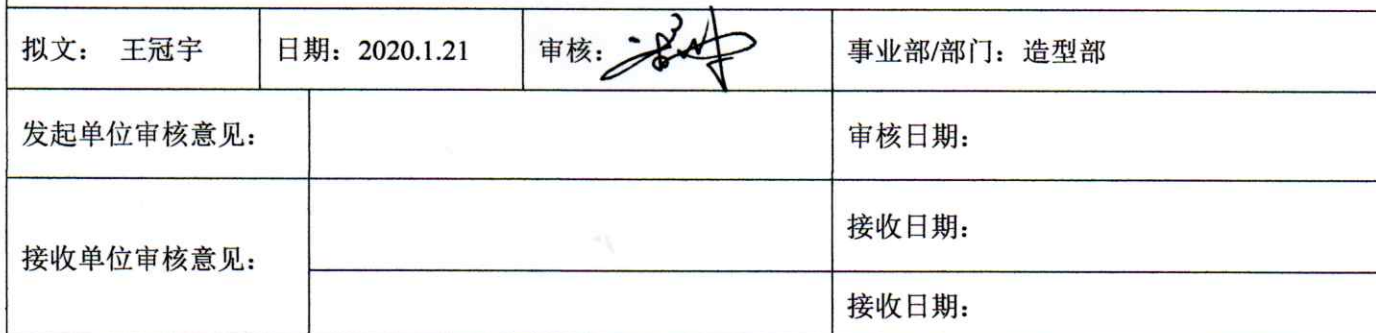 拟文： 王冠宇 日期：2020.1.21 审核： 事业部/部门：造型部
发起单位审核意见： 审核日期：
接收日期：
接收单位审核意见：
接收日期：